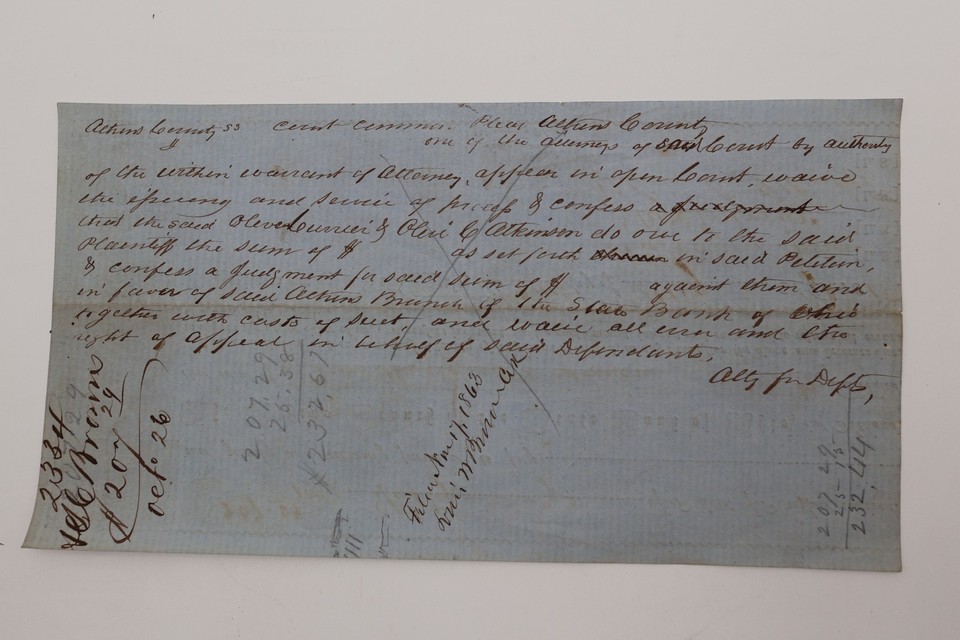 Athens County ss Court Common Pleas Athens County
one of the Attorneys of said Court by authority
of the within warrant of Attorney, appear in open Court, waive
the issuing and service of process & confess a judgment
that the said Oliver Currier & Olive C Atkinson do owe to the said
Plaintiff the sum of $ as set forth in said Petition,
& confess a Judgment for said sum of $ against them and
in favor of said Athens Branch of the State Bank of Ohio
together with costs of suit and waive all error and the
right of Appeal in behalf of said Defendants.
Atty for Defts,
2334
Brown
$ 207 29
Oct. 26
207.29
25.38
$232,67
Filed Nov 17, 1863
Louis W Brown Clk
207 29
25 15
232,44